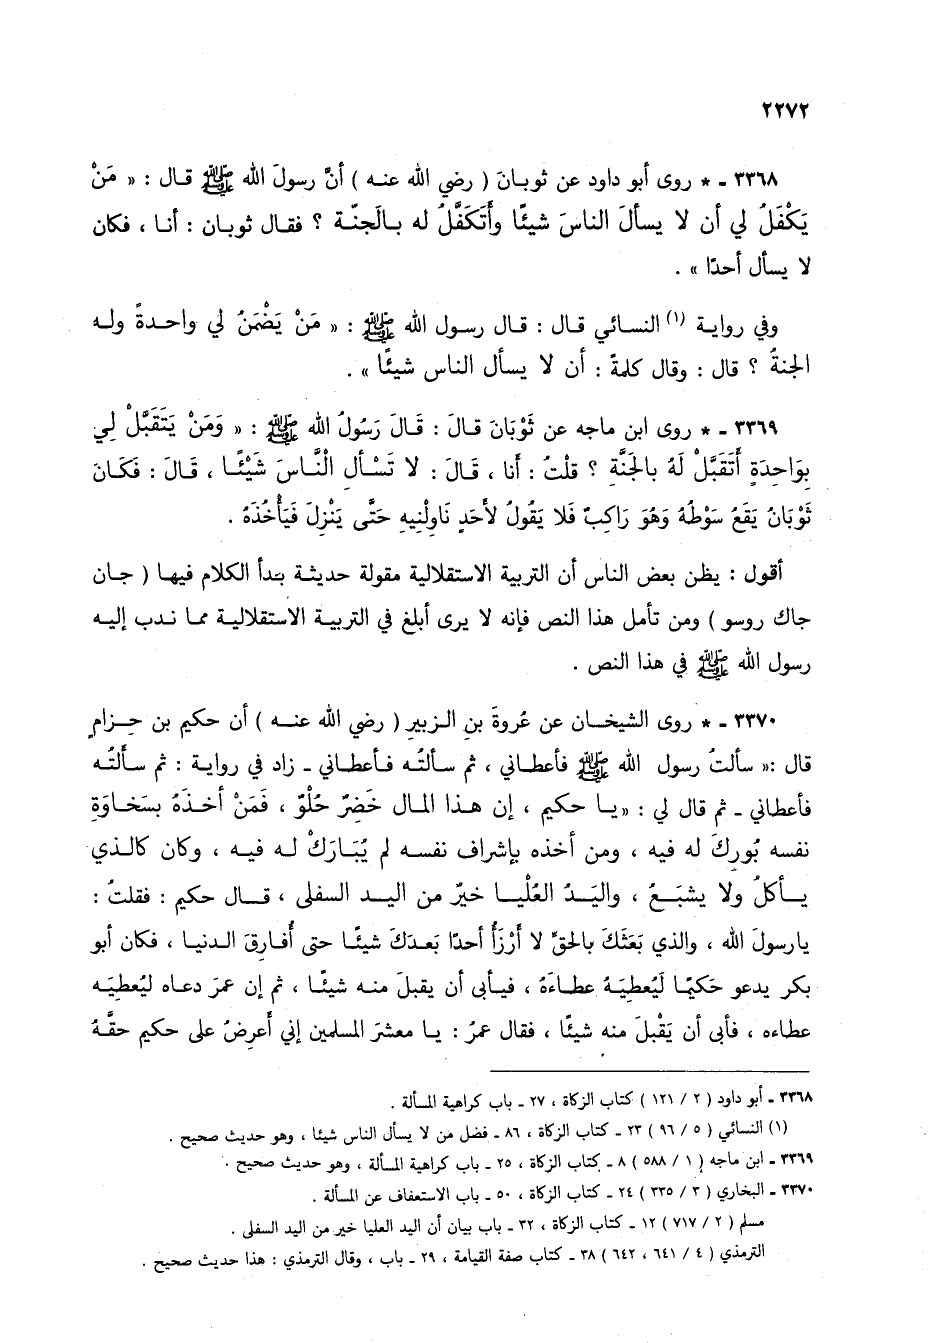 ٢٢٧٢
٣٣٦٨ ـ * روى أبو داود عن ثوبانَ ( رضي الله عنه ) أنَّ رسولَ الله ﷺ قال : « مَنْ
يَكْفَلُ لي أن لا يسألَ الناسَ شيئًا وأَتَكَفَّلُ له بالَجنّة ؟ فقال ثوبان : أنا ، فكان
لا يسأل أحدًا » .
وفي رواية (١) النسائي قال : قال رسول الله ﷺ : « مَنْ يَضْمَنُ لي واحدةً وله
الجنةُ ؟ قال : وقال كلمةً : أن لا يسأل الناس شيئًا » .
٣٣٦٩ ـ * روى ابن ماجه عن ثَوْبَانَ قالَ : قَالَ رَسُولُ الله ﷺ : « وَمَنْ يَتَقَبَّلْ لِي
بِوَاحِدَةٍ أَتَقَبَّلْ لَهُ بالجَنَّة ؟ قلْتُ : أنا ، قَالَ : لا تَسْأل الْنَّاسَ شَيْئًا ، قَالَ : فَكَانَ
ثَوْبَانُ يَقَعُ سَوْطُهُ وَهُوَ رَاكِبٌ فَلا يَقُولُ لأَحَدٍ نَاوِلْنِيهِ حَتَّى يَنْزِلَ فَيَأْخُذَهُ .
أقول : يظن بعض الناس أن التربية الاستقلالية مقولة حديثة بدأ الكلام فيها ( جان
جاك روسو ) ومن تأمل هذا النص فإنه لا يرى أبلغ في التربية الاستقلالية مما ندب إليه
رسول الله ﷺ في هذا النص .
٣٣٧٠ ـ * روى الشيخان عن عُروةَ بنِ الزبيرِ ( رضي الله عنه ) أن حكيم بن حِزامٍ
قال :« سألتُ رسول الله ﷺ فأعطاني ، ثم سألتُه فأعطاني ـ زاد في رواية : ثم سألتُه
فأعطاني ـ ثم قال لي : « يا حكيم ، إن هذا المال خَضِرٌ حُلْوٌ ، فَمَنْ أخذَهُ بسَخَاوَةِ
نفسه بُورِكَ له فيه ، ومن أخذه بإشراف نفسه لم يُبَارَكْ له فيه ، وكان كالذي
يأكلُ ولا يشبَعُ ، واليَدُ العُلْيا خيرٌ من اليد السفلى ، قال حكيم : فقلتُ :
يارسولَ الله ، والذي بَعَثَكَ بالحقِّ لا أَرْزَأُ أحدًا بَعدَكَ شيئًا حتى أُفارِقَ الدنيا ، فكان أبو
بكر يدعو حَكيمًا لَيُعطِيَهُ عطاءَهُ ، فيأبى أن يقبلَ منه شيئًا ، ثم إن عمرَ دعاه ليُعطيَه
عطاءه ، فأبى أن يَقْبلَ منه شيئًا ، فقال عمرُ : يا معشرَ المسلمين إني أَعرِضُ على حكيم حقَّهُ
٣٣٦٨ ـ أبو داود ( ٢ / ١٢١ ) كتاب الزكاة ، ٢٧ ـ باب كراهية المسألة .
(١) النسائي ( ٥ / ٩٦ ) ٢٣ ـ كتاب الزكاة ، ٨٦ ـ فضل من لا يسأل الناس شيئا ، وهو حديث صحيح .
٣٣٦٩ ـ ابن ماجه ( ١ / ٥٨٨ ) ٨ ـ كتاب الزكاة ، ٢٥ ـ باب كراهية المسألة ، وهو حديث صحيح .
٣٣٧٠ ـ البخاري ( ٣ / ٣٣٥ ) ٢٤ ـ كتاب الزكاة ، ٥٠ ـ باب الاستعفاف عن المسألة .
مسلم ( ٢ / ٧١٧ ) ١٢ ـ كتاب الزكاة ، ٣٢ ـ باب بيان أن اليد العليا خير من اليد السفلى .
الترمذي ( ٤ / ٦٤١ ، ٦٤٢ ) ٣٨ ـ كتاب صفة القيامة ، ٢٩ ـ باب ، وقال الترمذي : هذا حديث صحيح .